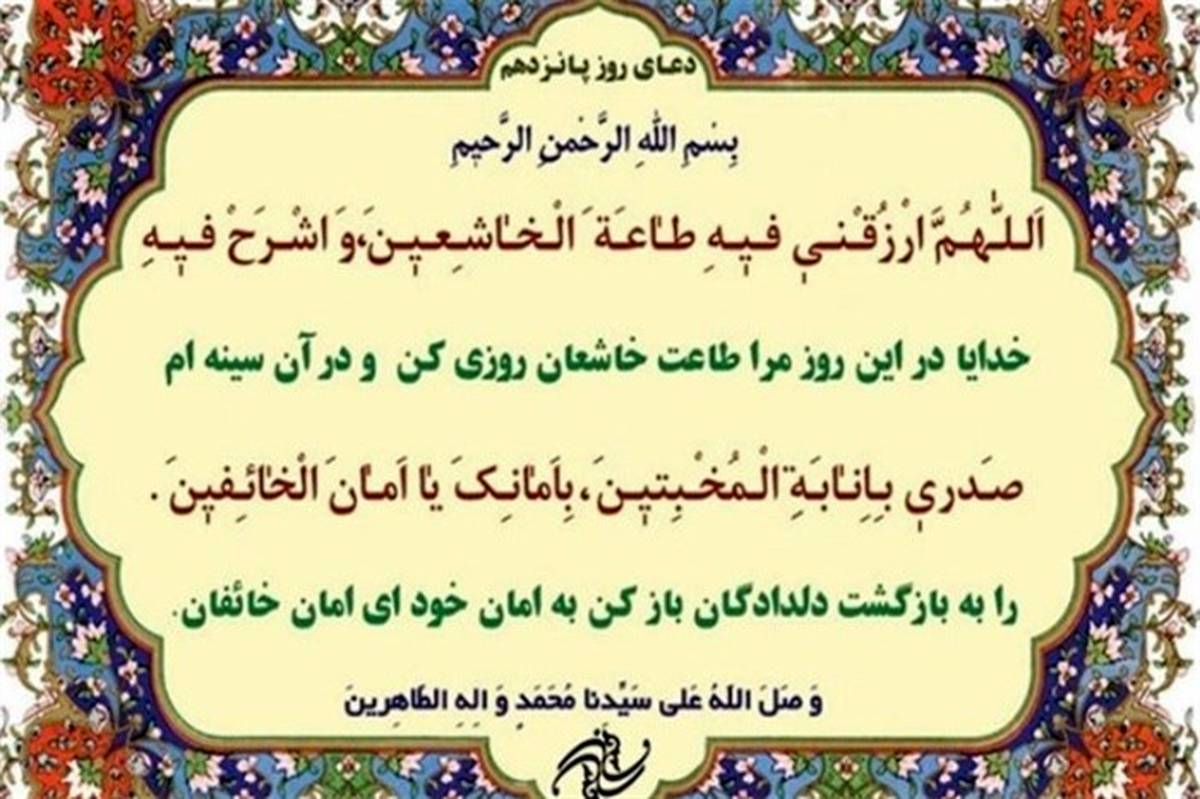 دعای روز پانزدهم
بِسْمِ اللهِ الرَّحْمنِ الرَّحیمِ
اَللّهُمَّ ارْزُقْنی فیهِ طاعَةَ الْخاشِعینَ، وَ اشْرَحْ فیهِ
خدایا در این روز مرا طاعت خاشعان روزی کن و در آن سینه ام
صَدری بِاِنابَةِ الْمُخْبِتینَ، بِاَمانِکَ یا اَمانَ الْخائِفینَ.
را به بازگشت دلدادگان باز کن به امان خود ای امان خائفان.
وَ صَلَ اللهُ عَلی سَیِّدنا مُحَمَدٍ وَ الِهِ الطاهِرینَ